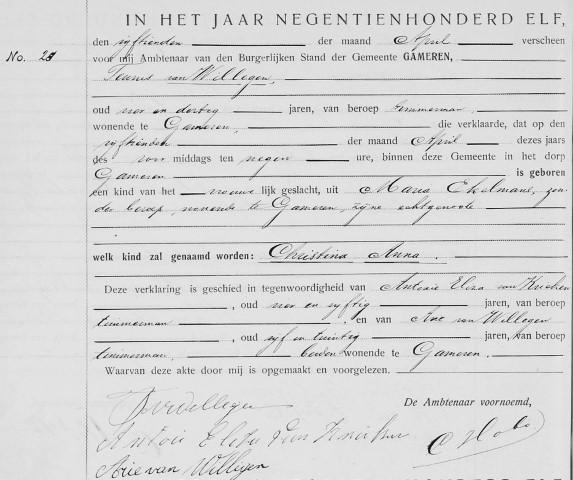 IN HET JAAR NEGENTIENHONDERD ELF,
den vyftienden der maand April verscheen
No. 21 voor mij Ambtenaar van den Burgerlijken Stand der Gemeente GAMEREN,
Teunis van Willegen,
oud vier en dertig jaren, van beroep timmerman,
wonende te Gameren, die verklaarde, dat op den
vyftienden der maand April dezes jaars
des voor middags ten negen ure, binnen deze Gemeente in het dorp
Gameren is geboren
een kind van het vrouwe lijk geslacht, uit Maria Ekelmans, zon
der beroep, wonende te Gameren, zijne echtgenoote
welk kind zal genaamd worden: Christina Anna.
Deze verklaring is geschied in tegenwoordigheid van Antonie Eliza van
, oud vier en vyftig jaren, van beroep
timmerman, en van Arie van Willegen
, oud vyf en twintig jaren, van beroep
timmerman, beiden wonende te Gameren.
Waarvan deze akte door mij is opgemaakt en voorgelezen.
De Ambtenaar voornoemd,
T van Willegen
van
Arie van Willegen